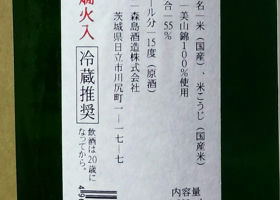 名 米（国産）、米こうじ（国産米）
美山錦100%使用
合 55%
ール分 15度（原酒）
森島酒造株式会社
茨城県日立市川尻町一-一七-七
火入
冷蔵推奨
飲酒は20歳に
なってから。
内容量